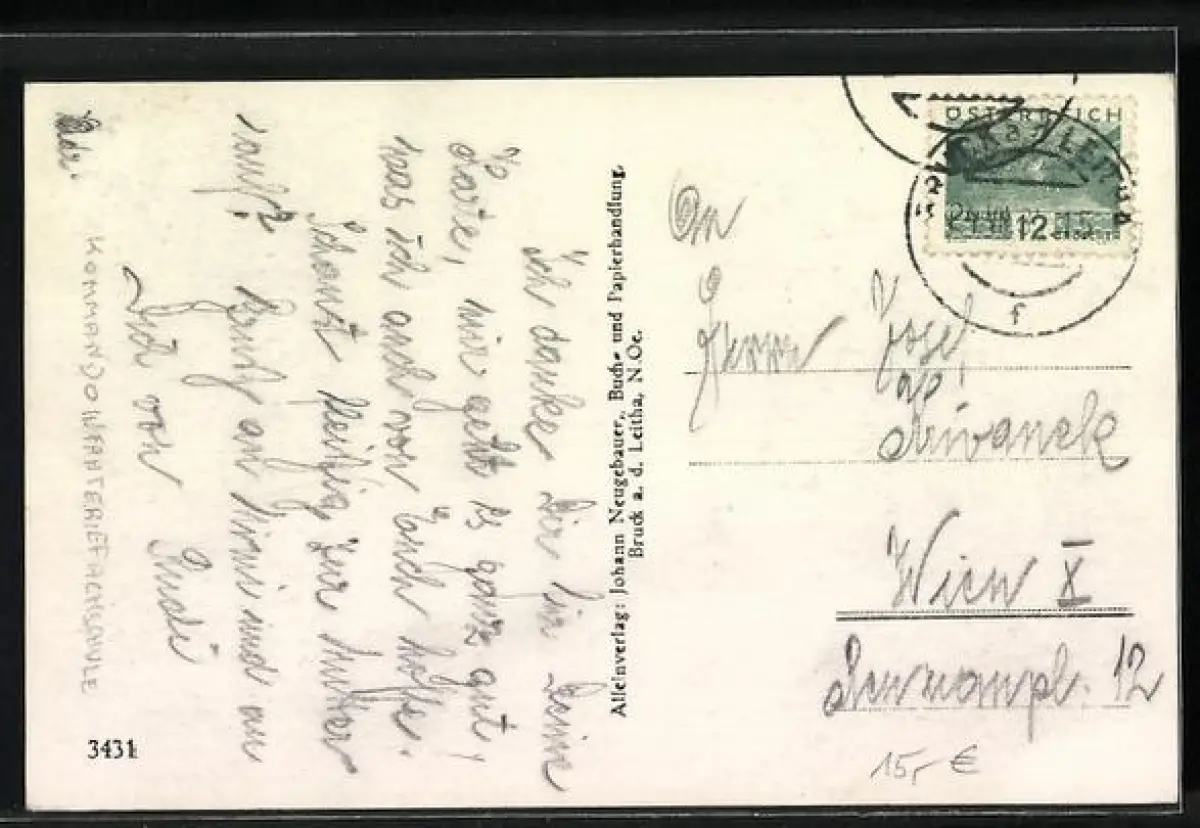 Ich danke Dir für Deine
Karte, mir geht es ganz gut,
was ich auch von Euch hoffe.
Schaust fleißig zur Mutter
rauf? Gruß an Mimi und an
Dich von Rudi
Adr.
KOMMANDO INFANTERIEFACHSCHULE
3431
Alleinverlag: Johann Neugebauer, Buch- und Papierhandlung,
Bruck a. d. Leitha, N.Oe.
ÖSTERREICH
12
f
An
Herrn Josef
Wien X
12
15,- €